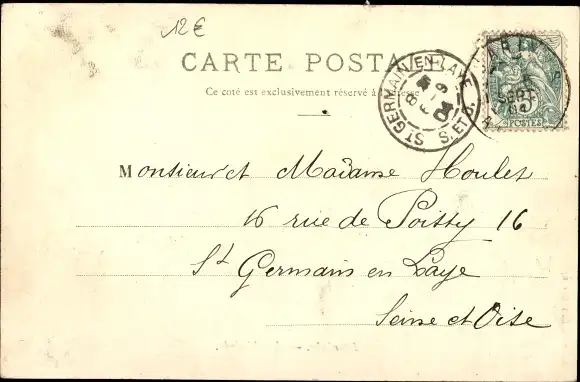 12€
CARTE POSTA
Ce coté est exclusivement réservé à
ST GERMAIN-EN-LAYE
8
9
04
S. ET O.
PARIS
SEPT
04
5
POSTES
Monsieur et Madame Houlet
16 rue de Poissy 16
St Germain en Laye
Seine et Oise